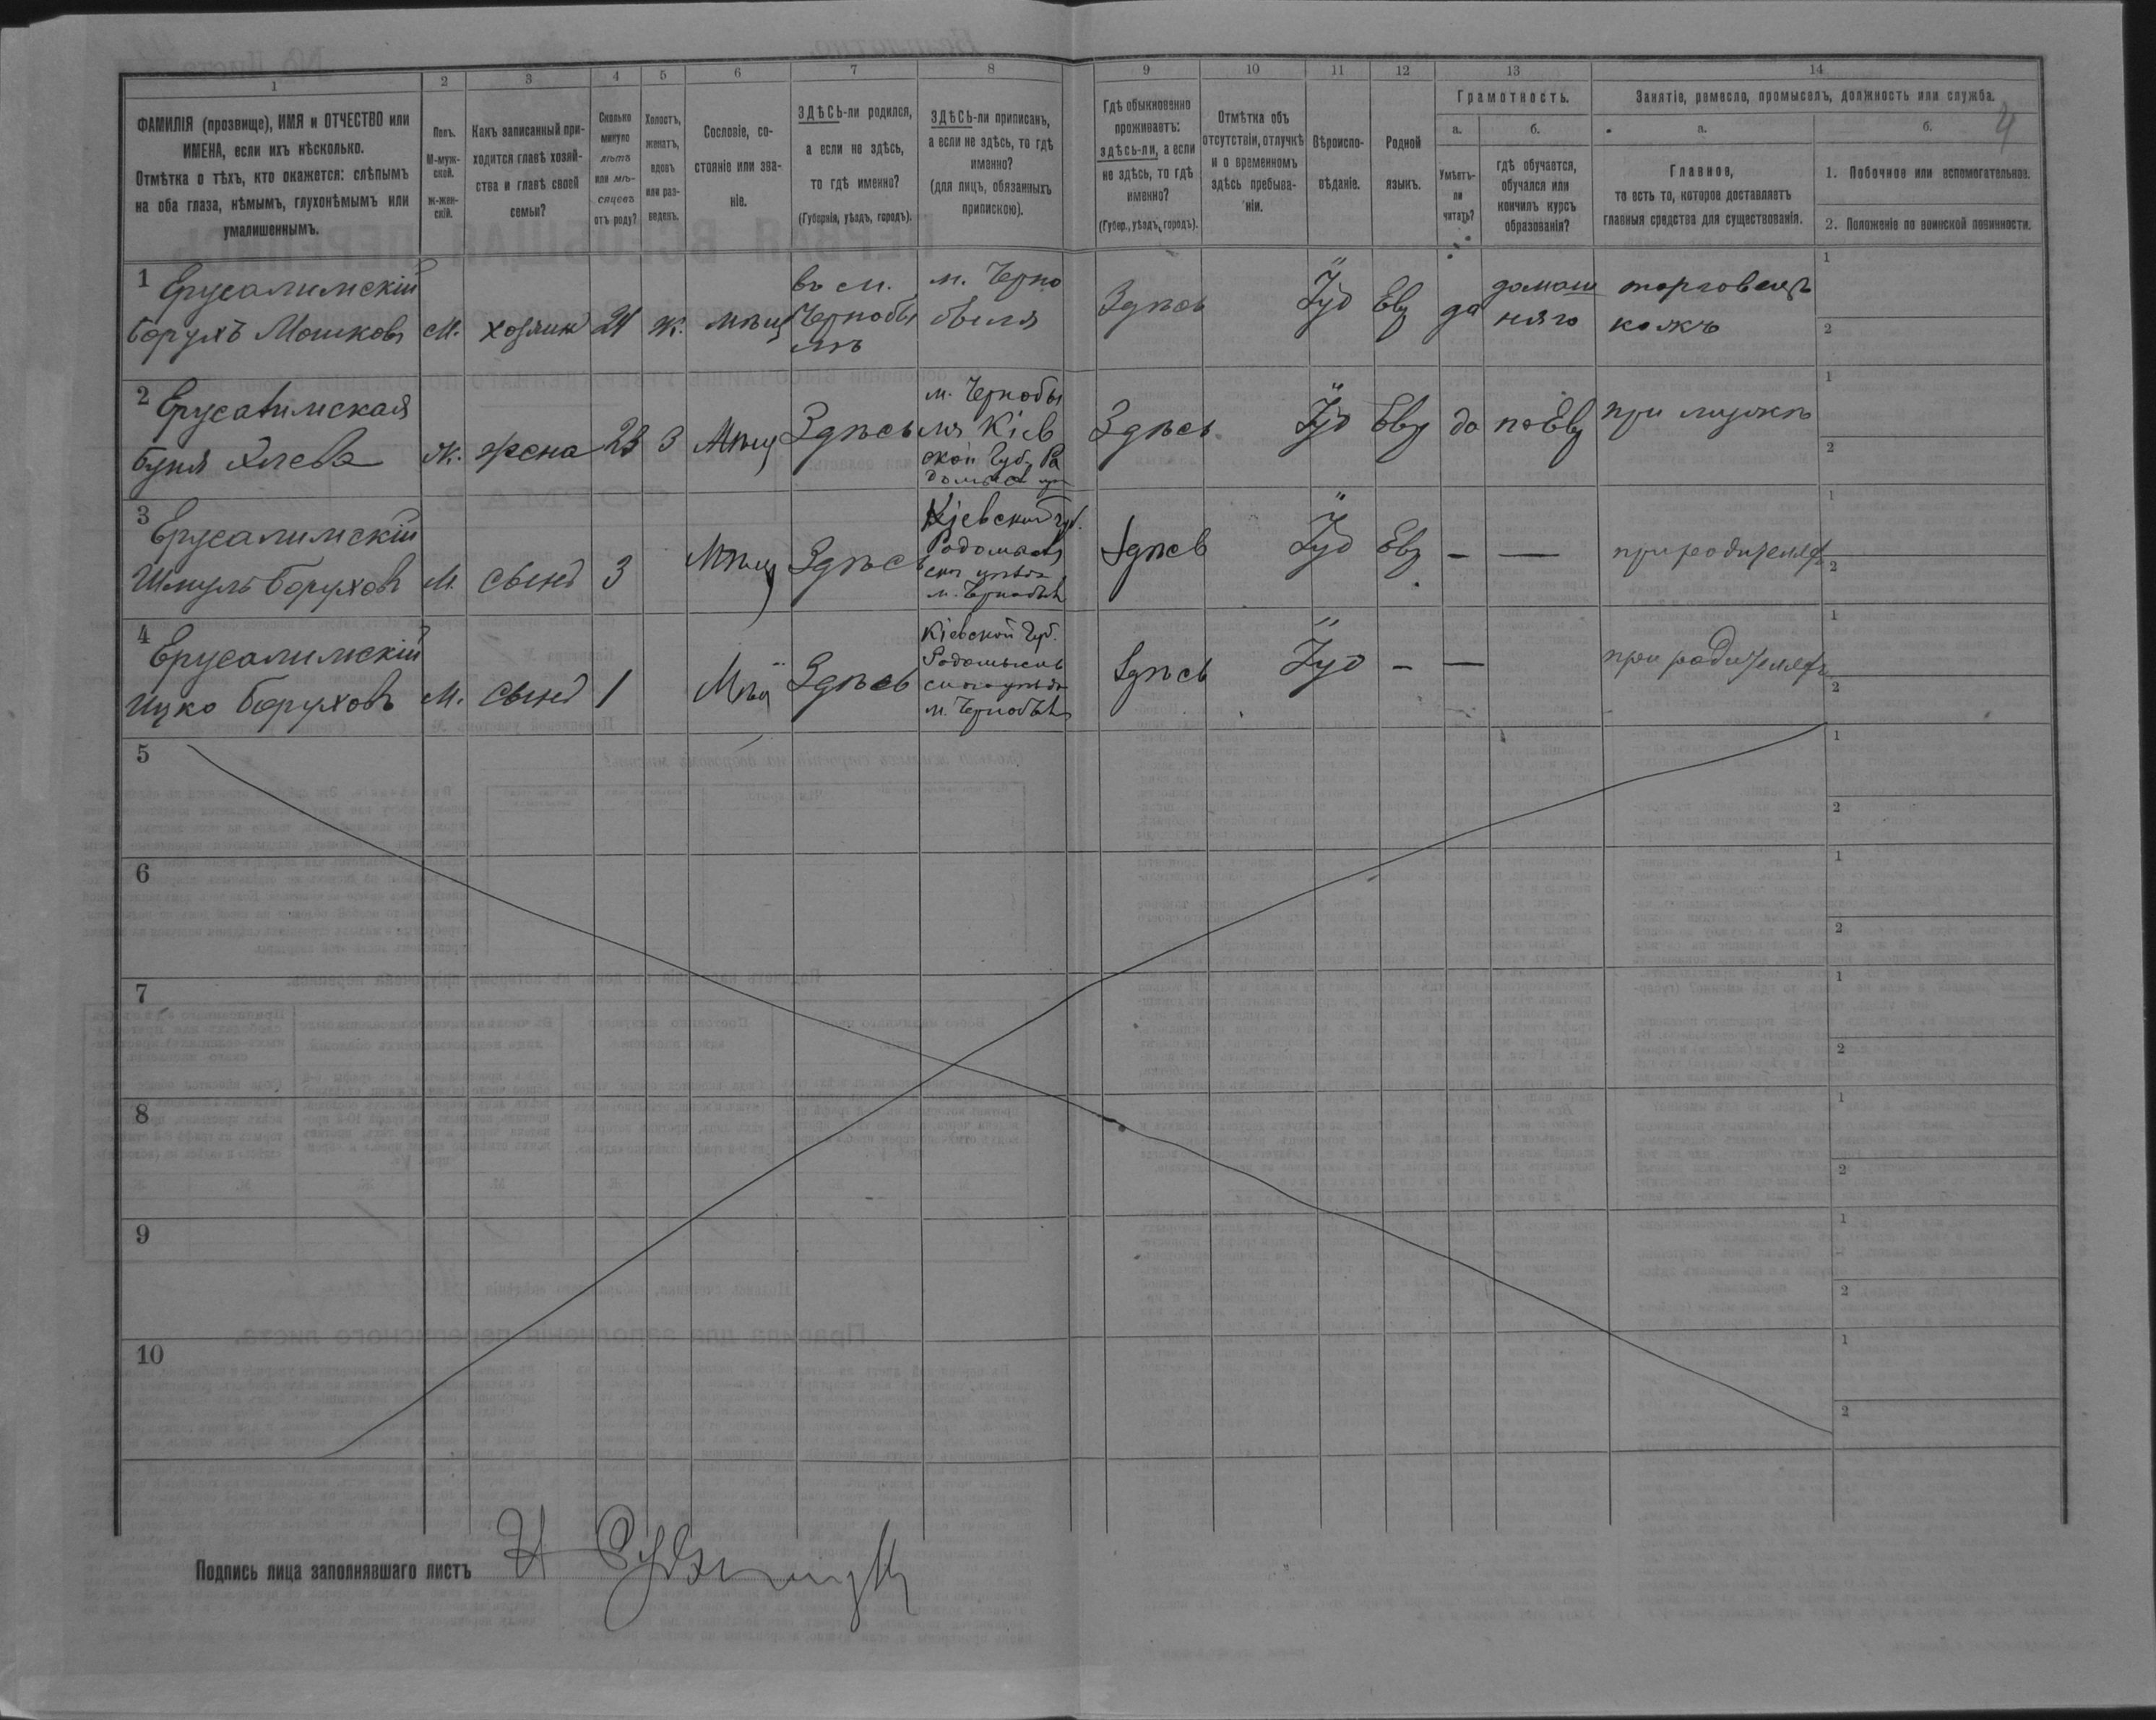 1
2
3
4
5
6
7
8
9
10
11
12
13
14
ФАМИЛІЯ (прозвище), ИМЯ и ОТЧЕСТВО или
ИМЕНА, если ихъ нѣсколько.
Отмѣтка о тѣхъ, кто окажется: слѣпымъ
на оба глаза, нѣмымъ, глухонѣмымъ или
умалишеннымъ.
Полъ.
М-муж-
ской.
Ж-жен-
скій.
Какъ записанный при-
ходится главѣ хозяй-
ства и главѣ своей
семьи?
Сколько
минуло
лѣтъ
или мѣ-
сяцевъ
отъ роду?
Холостъ,
женатъ,
вдовъ
или раз-
веденъ.
Сословіе, со-
стояніе или зва-
ніе.
ЗДѢСЬ-ли родился,
а если не здѣсь,
то гдѣ именно?
(Губернія, уѣздъ, городъ).
ЗДѢСЬ-ли приписанъ,
а если не здѣсь, то гдѣ
именно?
(для лицъ, обязанныхъ
припискою).
Гдѣ обыкновенно
проживаетъ:
здѣсь-ли, а если
не здѣсь, то гдѣ
именно?
(Губер., уѣздъ, городъ).
Отмѣтка объ
отсутствіи, отлучкѣ
и о временномъ
здѣсь пребыва-
ніи.
Вѣроиспо-
вѣданіе.
Родной
языкъ.
Грамотность.
а.
Умѣетъ-
ли
читать?
б.
гдѣ обучается,
обучался или
кончилъ курсъ
образованія?
Занятіе, ремесло, промыселъ, должность или служба.
4
а.
Главное,
то есть то, которое доставляетъ
главныя средства для существованія.
б.
1. Побочное или вспомогательное.
2. Положеніе по воинской повинности.
1 Ерусалимскій
Борухъ Мошковъ
М.
хозяин
24
ж.
мѣщ
въ м.
Чернобы
лѣ
м. Черно
быля
Здѣсь
Іуд
Евр
да
домаш
няго
торговецъ
кожъ
1
2
2 Ерусалимская
Буня
М. жена 23 З Мѣщ Здѣсь
м. Чернобы
ля Кіев
ской Губ. Ра
домысл
Здѣсь
Іуд
Евр
да
по Евр
при мужѣ
1
2
3 Ерусалимскій
Шмуль Боруховъ
М.
сынъ
3
Мѣщ
Здѣсь
Кіевской губ.
Радомысль
ска уѣзда
м. Чернобыль
Здѣсь
Іуд
Евр
—
—
при родителяхъ
1
2
4 Ерусалимскій
Ицко Боруховъ
М.
сынъ
1
Мѣщ
Здѣсь
Кіевской Губ.
Радомысль
скаго уѣзда
м. Чернобыль
Здѣсь
Іуд
—
—
при родителяхъ
1
2
5
1
2
6
1
2
7
1
2
8
1
2
9
1
2
10
1
2
Подпись лица заполнявшаго листъ